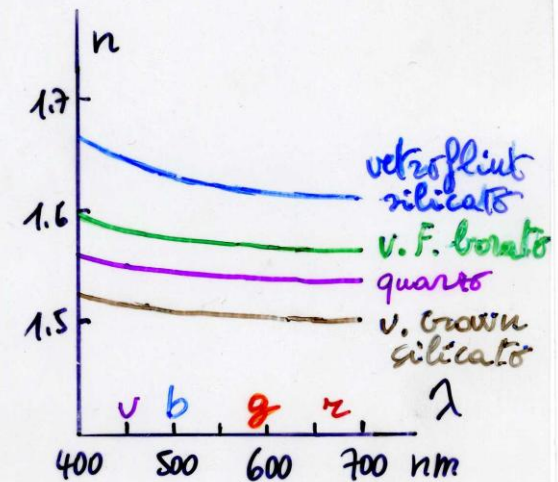 n
1.7
vetro flint
silicato
1.6
v. F. borato
quarzo
1.5
v. crown
silicato
v b g r λ
400 500 600 700 nm